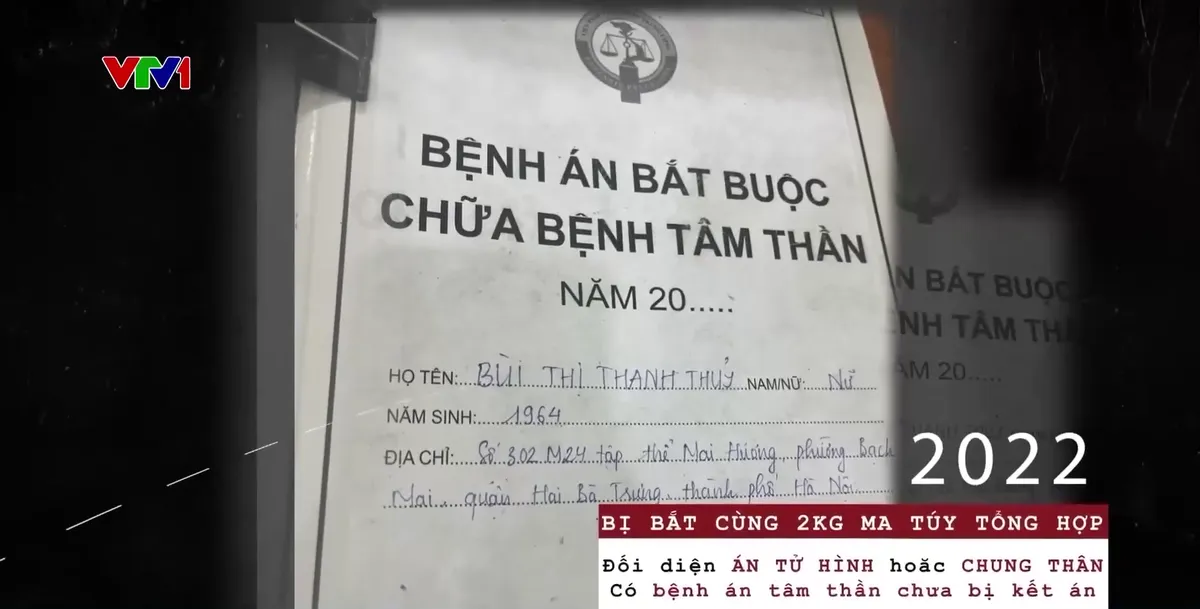 VTV1
BỆNH ÁN BẮT BUỘC
CHỮA BỆNH TÂM THẦN
NĂM 20.....
HỌ TÊN: BÙI THỊ THANH THUỶ NAM/NỮ: Nữ
NĂM SINH: 1964
ĐỊA CHỈ: Số 302 M24 tập thể Mai Hương, phường Bạch
Mai, quận Hai Bà Trưng, thành phố Hà Nội
N BẮT BUỘC
NH TÂM TH
ĂM 20.....
2022
BỊ BẮT CÙNG 2KG MA TÚY TỔNG HỢP
Đối diện ÁN TỬ HÌNH hoặc CHUNG THÂN
Có bệnh án tâm thần chưa bị kết án